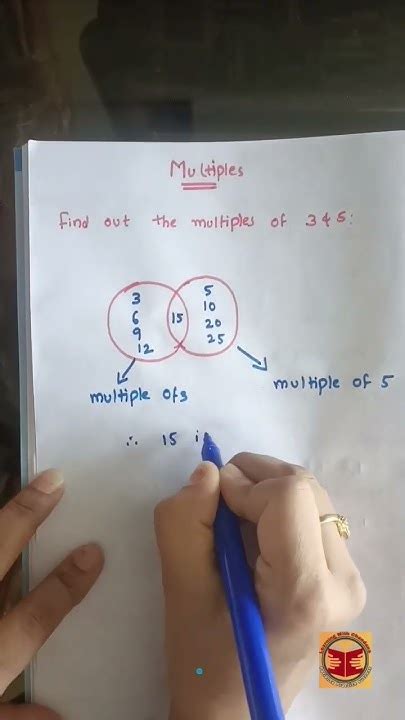 Multiples
Find out the multiples of 3 & 5:
3
6
9
12
15
5
10
20
25
multiple of 3
multiple of 5
∴ 15 i